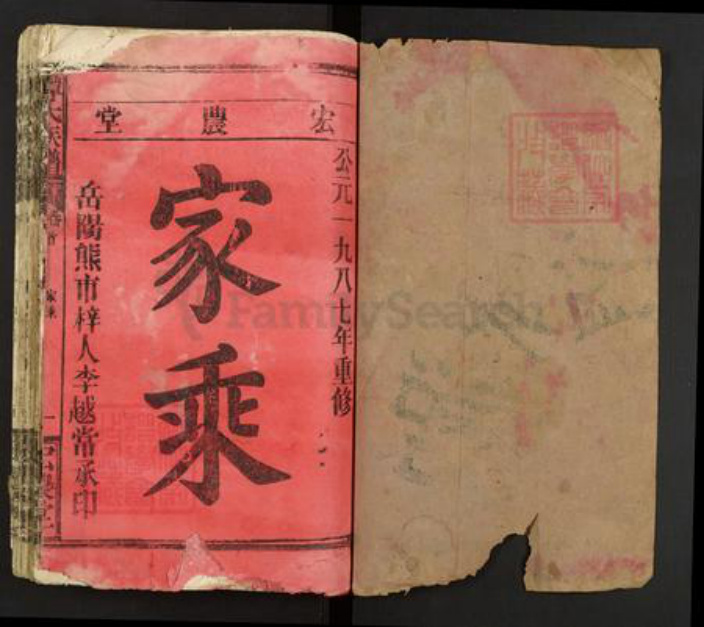 宏農堂
公元一九八七年重修
家乘
岳陽熊市梓人李越常承印
氏族譜
卷首
家乘
FamilySearch